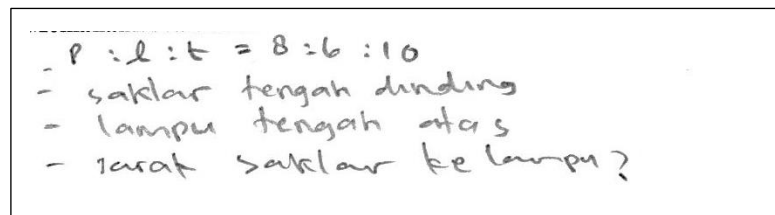 - P : l : t = 8 : 6 : 10
- saklar tengah dinding
- lampu tengah atas
- jarak saklar ke lampu?